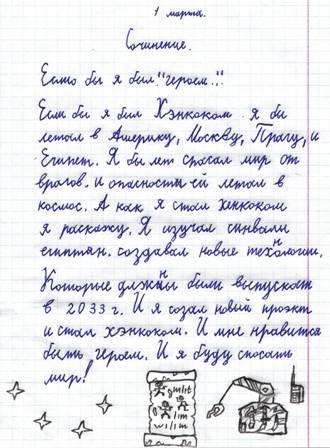 1 марта.
Сочинение.
Если бы я был "героем..."
Если бы я был Хэнкоком я бы
летал в Америку, Москву, Прагу, и
Египет. Я бы лет спасал мир от
врагов. и опасносты ей летал в
космос. А как я стал хенкоком
я раскажу. Я изучал синвалы
египтян. создавал новые техннологии.
Которые должнны были выпускат
в 2033 г. И я созал новый проэкт
и стал хэнкоком. И мне нравится
быть героем. И я буду спосать
мир!
gmlit
lim
wilim